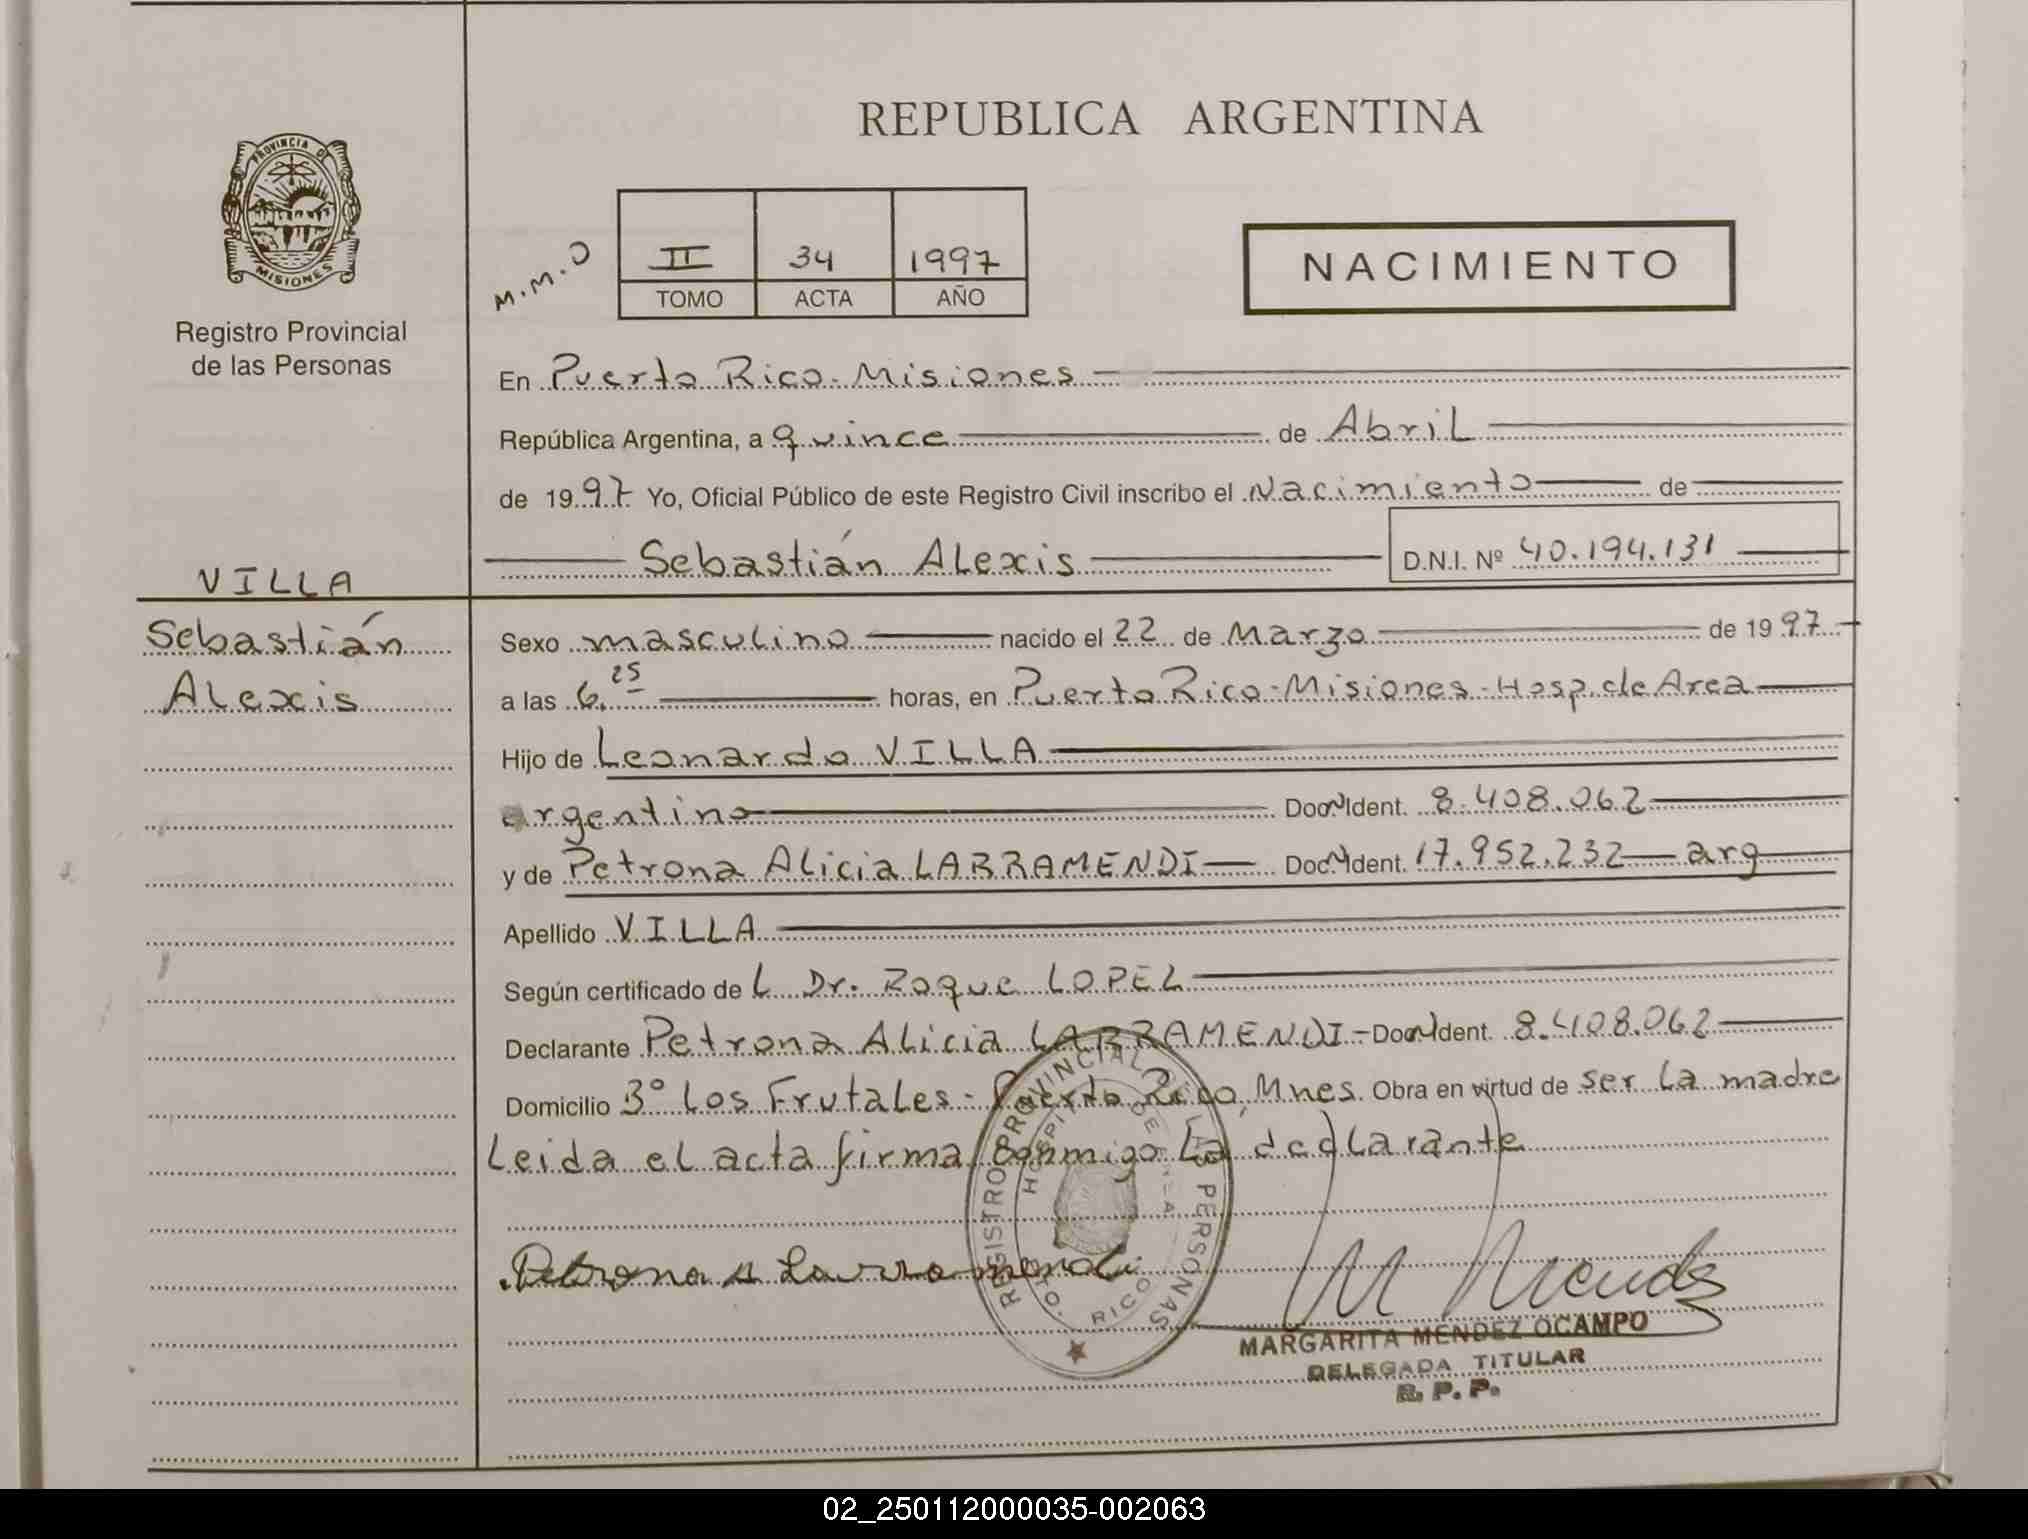 REPUBLICA ARGENTINA
PROVINCIA DE
MISIONES
Registro Provincial
de las Personas
M.M.O
II 34 1997
TOMO ACTA AÑO
NACIMIENTO
En Puerto Rico - Misiones
República Argentina, a quince de Abril
de 1997 Yo, Oficial Público de este Registro Civil inscribo el Nacimiento de
Sebastián Alexis D.N.I. Nº 40.194.131
VILLA
Sebastián
Alexis
Sexo masculino nacido el 22 de Marzo de 1997
a las 6,25 horas, en Puerto Rico - Misiones - Hosp. de Area
Hijo de Leonardo VILLA
argentino Doc. Ident. 8.408.062
y de Petrona Alicia LARRAMENDI Doc. Ident. 17.952.232 arg
Apellido VILLA
Según certificado de L Dr. Roque LOPEZ
Declarante Petrona Alicia LARRAMENDI - Doc. Ident. 8.408.062
Domicilio 3º Los Frutales - Puerto Rico, Mnes. Obra en virtud de ser la madre
Leida el acta firma conmigo la declarante
REGISTRO PROVINCIAL LAS PERSONAS
RICO
Petrona A Larramendi
M Mendez
MARGARITA MENDEZ OCAMPO
DELEGADA TITULAR
R. P. P.
02_250112000035-002063